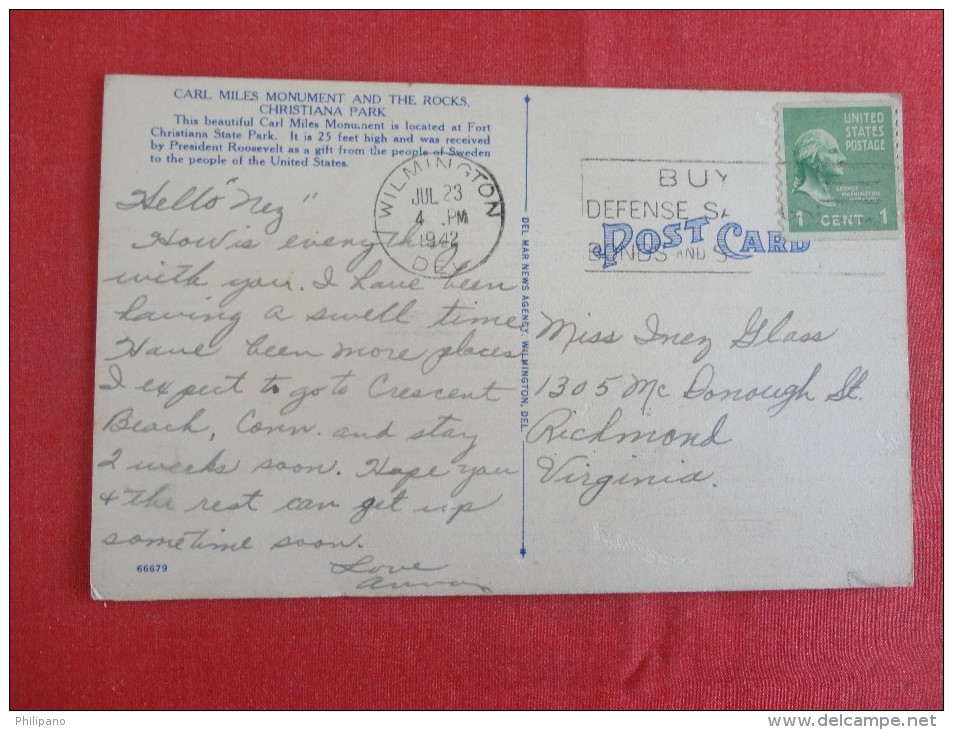 CARL MILES MONUMENT AND THE ROCKS,
CHRISTIANA PARK
This beautiful Carl Miles Monument is located at Fort
Christiana State Park. It is 25 feet high and was received
by President Roosevelt as a gift from the people of Sweden
to the people of the United States.
WILMINGTON
JUL 23
4 PM
1942
DEL
BUY
DEFENSE SA
BONDS AND S
UNITED
STATES
POSTAGE
GEORGE
WASHINGTON
1 CENT 1
POST CARD
Hello "Nez"
How is everything
with you. I have been
having a swell time
Have been more places
I expect to go to Crescent
Beach, Conn. and stay
2 weeks soon. Hope you
& the rest can get up
sometime soon.
Love
Anna
66679
DEL MAR NEWS AGENCY, WILMINGTON, DEL.
Miss Inez Glass
1305 Mc Donough St.
Richmond
Virginia.
Philipano
www.delcampe.net